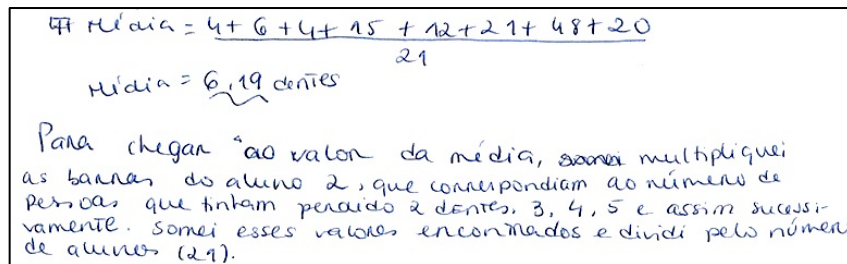 Média = 4+6+4+15+12+21+48+20
21
Média = 6,19 dentes
Para chegar ao valor da média, multipliquei
as barras do aluno 2, que correspondiam ao número de
pessoas que tinham perdido 2 dentes, 3, 4, 5 e assim sucessi-
vamente. Somei esses valores encontrados e dividi pelo númer
de alunos (21).